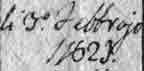 li 3º. Febbrajo
1623.